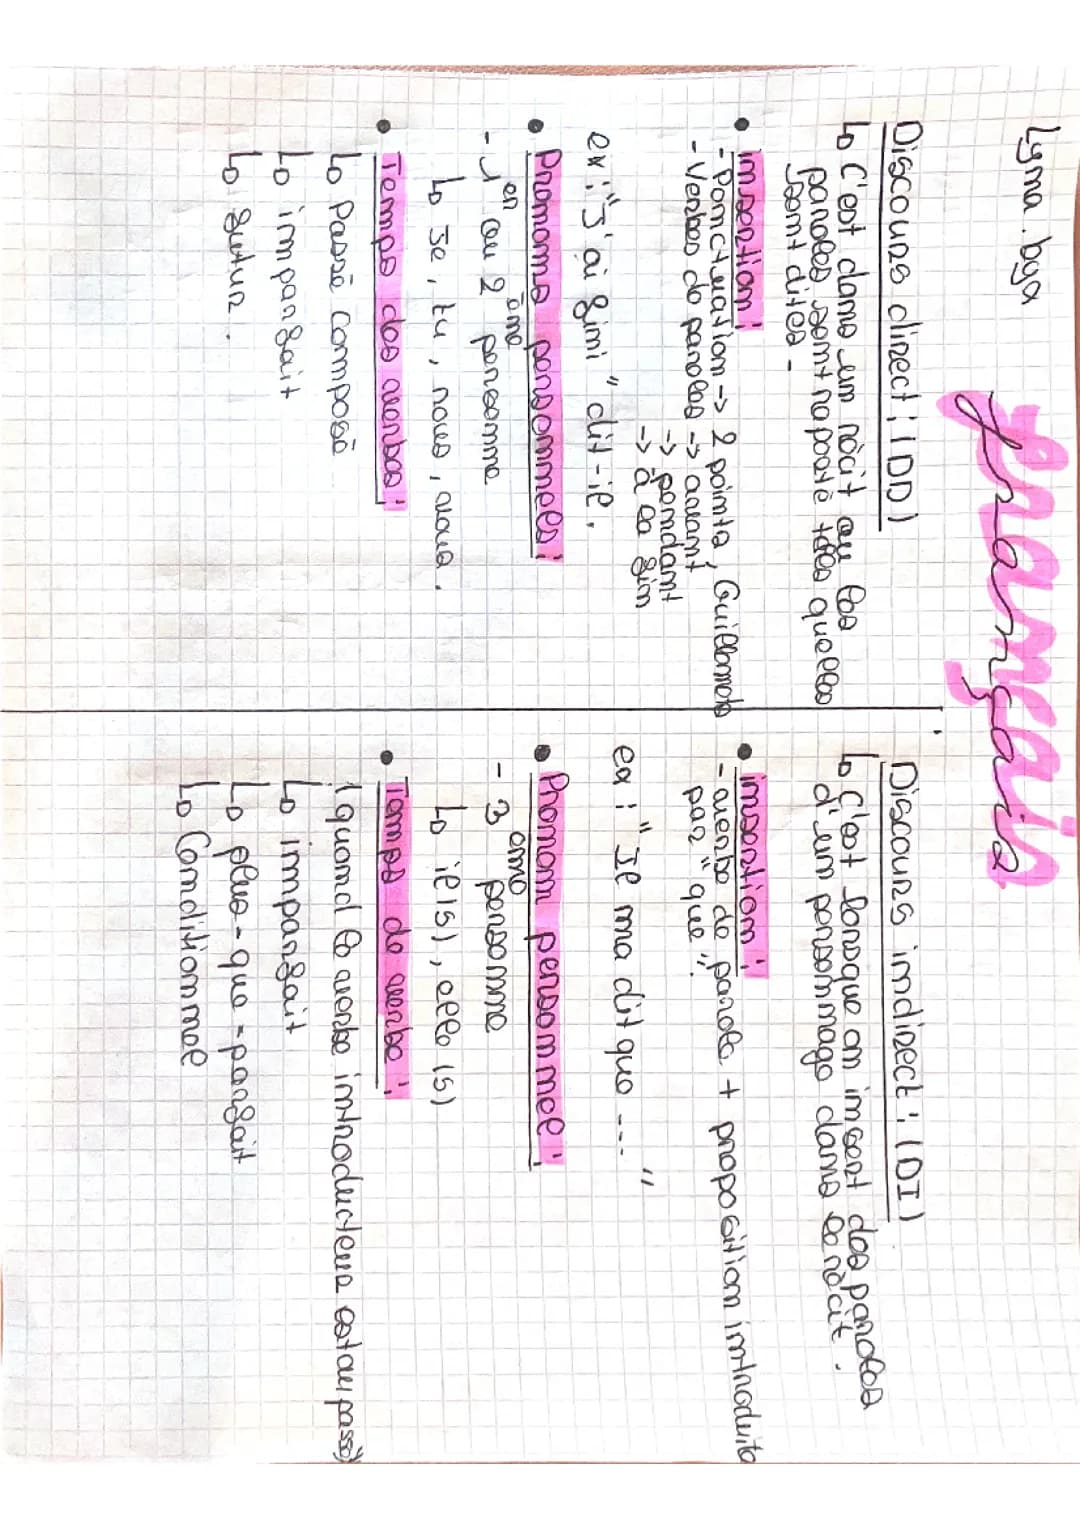 Lyna.bga
Français
Discours direct : (DD)
↳ C'est dans un récit ou les
paroles sont raporté telles quelles
sont dites -
• insertion :
- Ponctuation -> 2 points, Guillemets
- Verbes de paroles -> avant
-> pendant
-> à la fin
ex : "J'ai fini" dit-il.
• Pronoms personnels :
- 1er ou 2ème personne
↳ Je, tu, nous, vous.
• Temps des verbes :
↳ Passé composé
↳ imparfait
↳ futur.
Discours indirect : (DI)
↳ C'est lorsque on insert des paroles
d'un personnage dans le récit.
• insertion :
- verbe de parole + proposition introduite
par "que".
ex : " Il ma dit que --- "
• Pronom personnel :
- 3ème personne
↳ il(s), elle(s)
• Temps de verbe :
(quand le verbe introducteur est au passé)
↳ imparfait
↳ plus-que-parfait
↳ Conditionnel